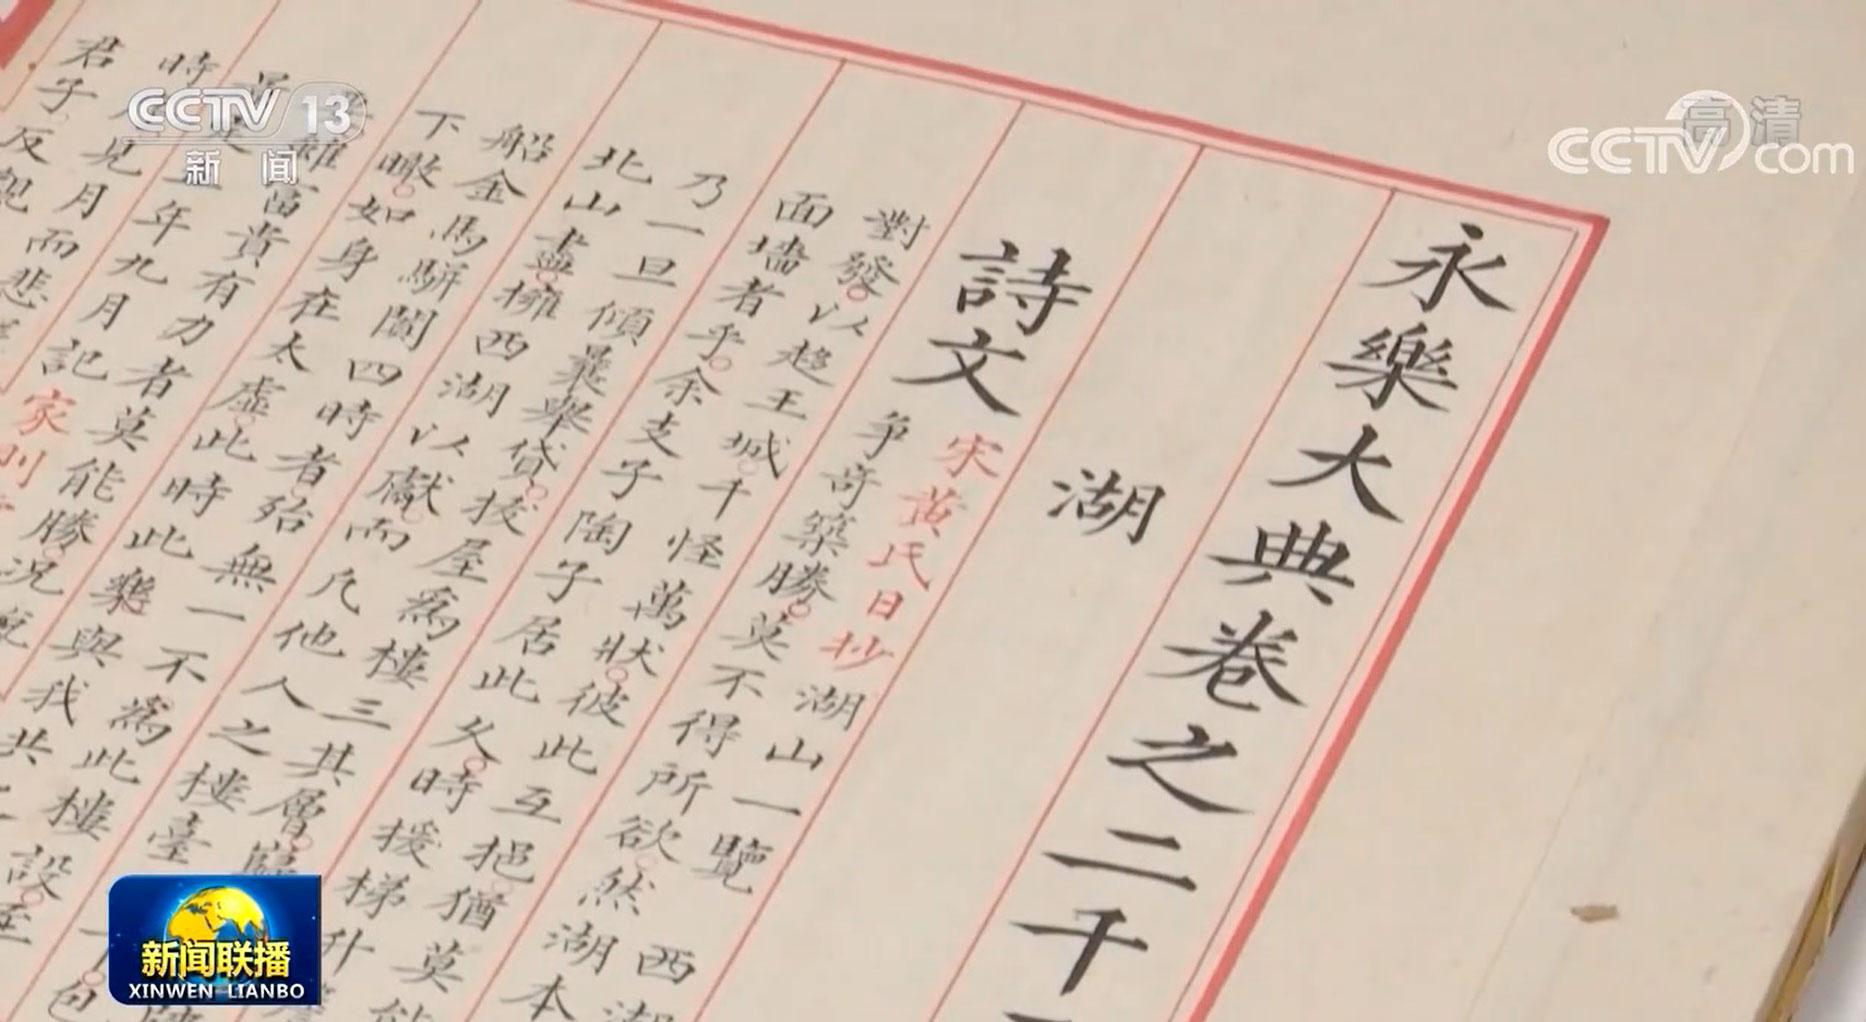 CCTV 13
新闻
高清
CCTV com
永樂大典卷之二千
湖
詩文 宋黄氏日抄 湖山一覽 西湖
爭奇築勝。莫不得所欲。然湖本
對發。以趨王城。千怪萬狀。彼此互挹。猶莫能
面墻者乎。余支子陶子居此久。時援梯升
乃一旦傾囊舉貸。援屋爲樓三其層。
北山盡。擁西湖以獻。而凡他人之樓臺
船金馬駢闐四時者殆無一不爲此樓設。
下瞰。如身在太虛。此時此樂與我共
雖富貴有力者莫能勝。況
年九月記 家
見月而悲
君子反
新闻联播
XINWEN LIANBO